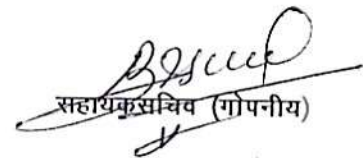 सहायक सचिव (गोपनीय)